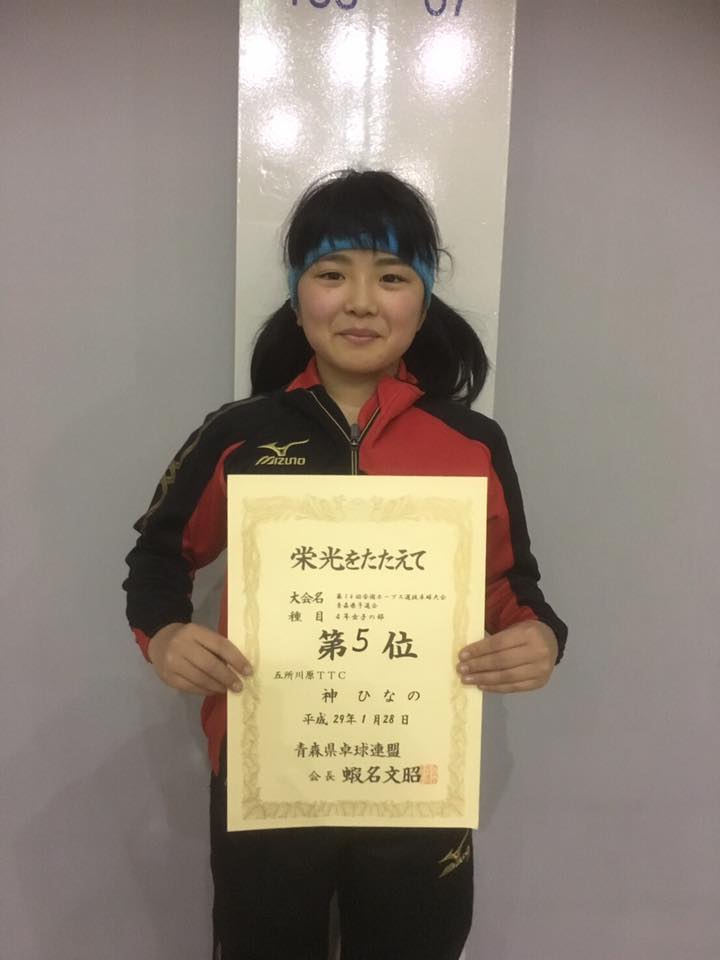 MIZUNO
栄光をたたえて
大会名 第14回全国ホープス選抜卓球大会
青森県予選会
種目 4年女子の部
第5位
五所川原TTC
神 ひなの
平成29年1月28日
青森県卓球連盟
会長 蝦名文昭